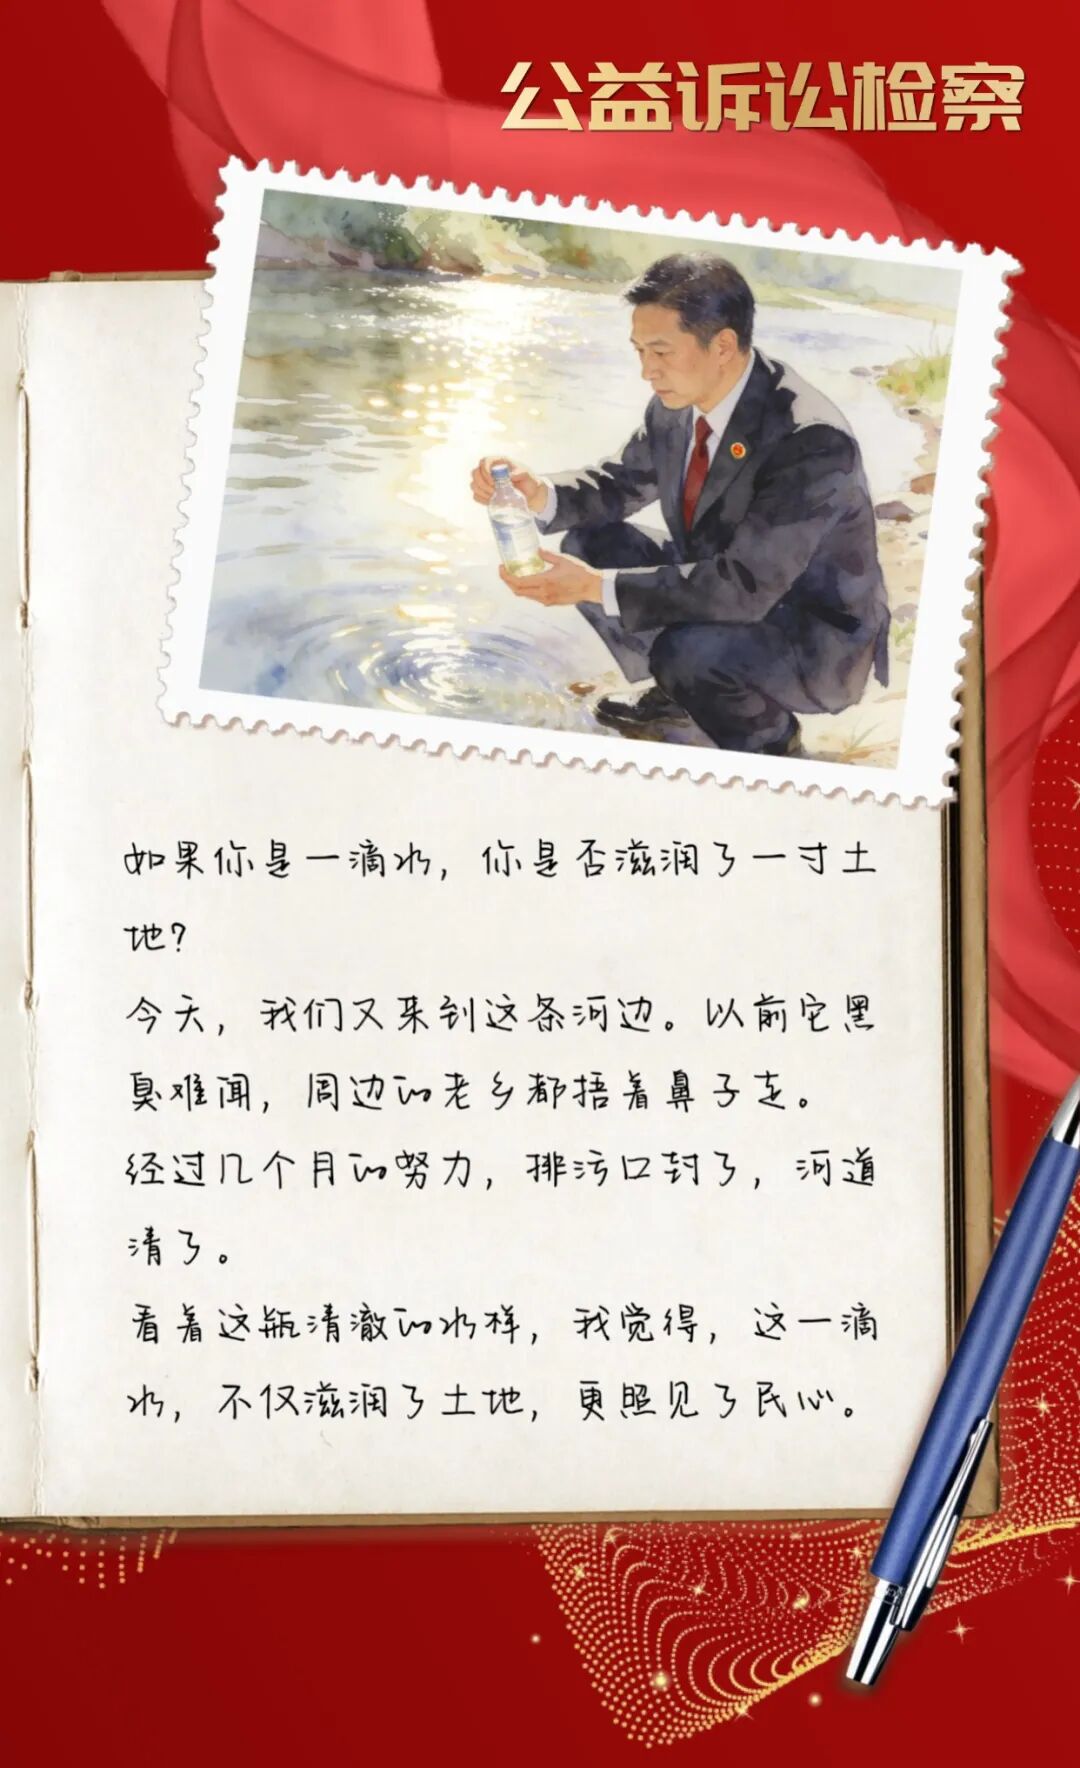 公益诉讼检察
如果你是一滴水，你是否滋润了一寸土
地？
今天，我们又来到这条河边。以前它黑
臭难闻，周边的老乡都捂着鼻子走。
经过几个月的努力，排污口封了，河道
清了。
看着这瓶清澈的水样，我觉得，这一滴
水，不仅滋润了土地，更照见了民心。